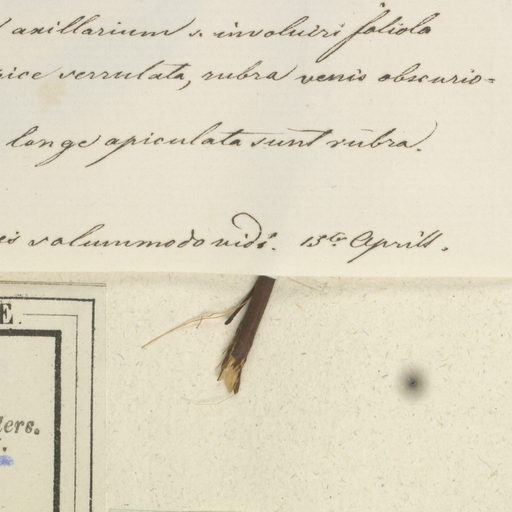 axillarium s. involucri foliola
serrulata, rubra venis obscurio=
longe apiculata sunt rubra.
solummodo vidi. 13te Aprill.
E.
ders.